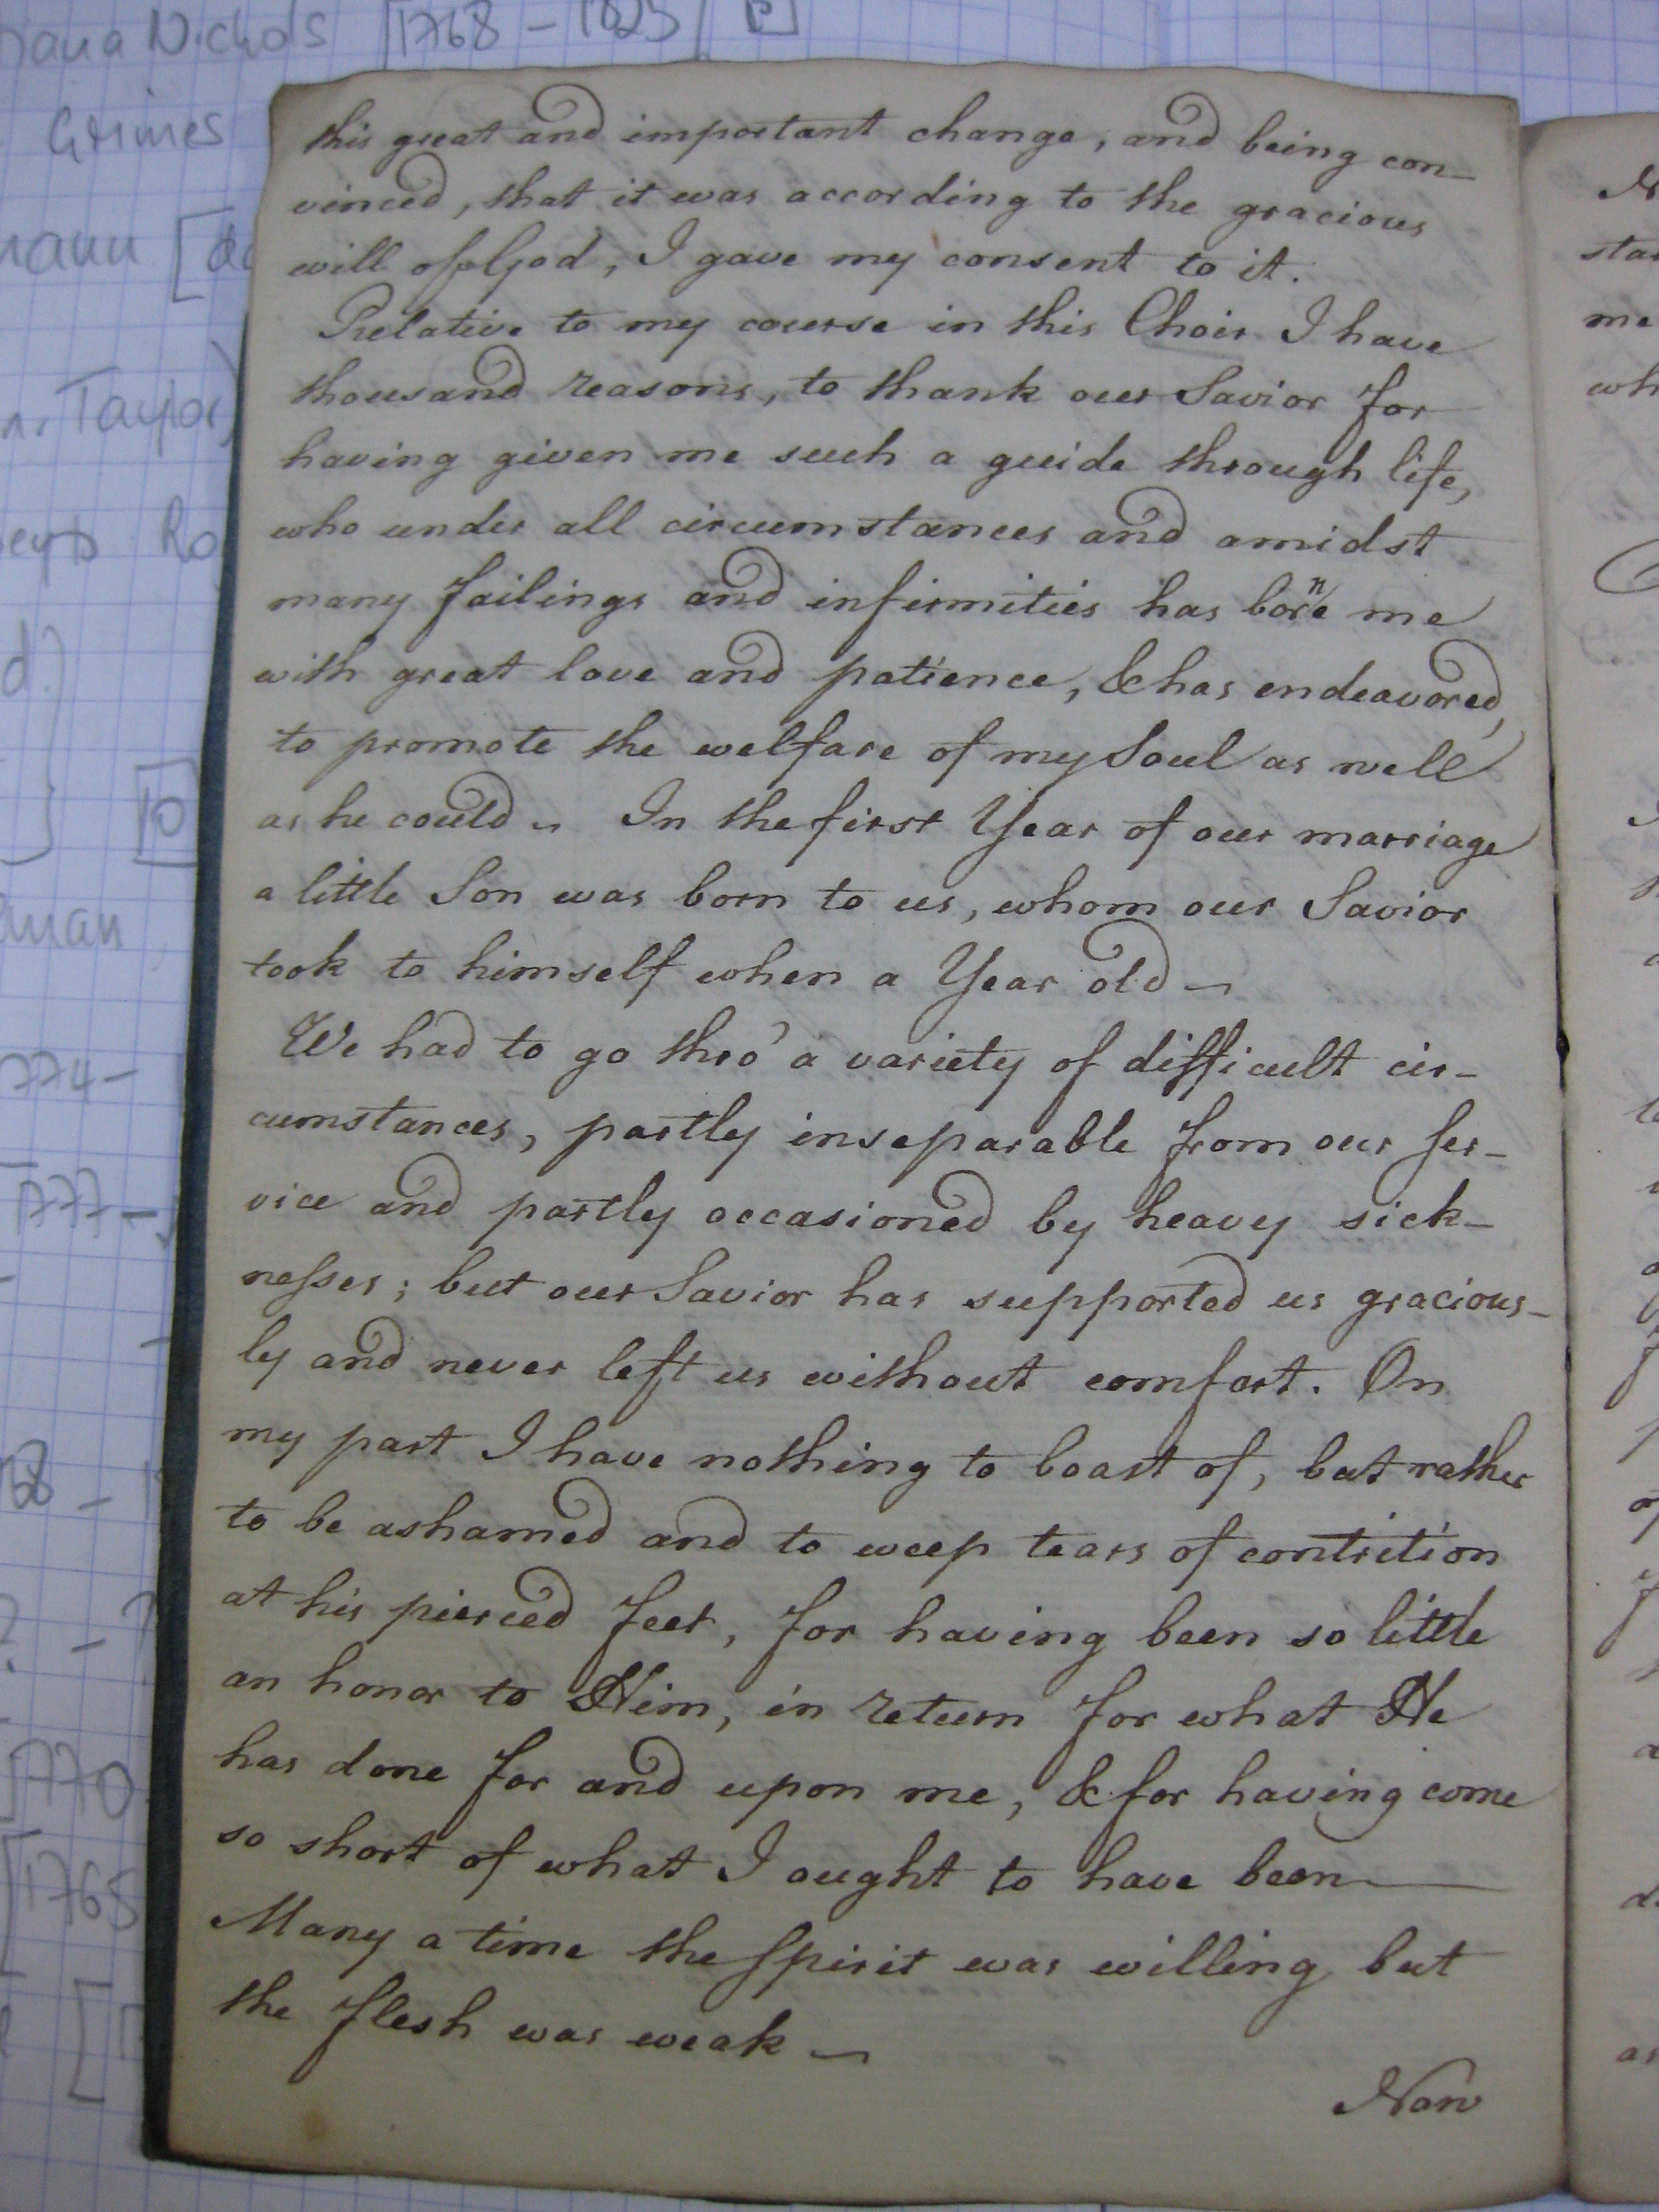 this great and important change, and being con-
vinced, that it was according to the gracious
will of God, I gave my consent to it.
Relative to my course in this Choir I have
thousand reasons, to thank our Savior for
having given me such a guide through life,
who under all circumstances and amidst
many failings and infirmities has borne me
with great love and patience, & has endeavored,
to promote the welfare of my Soul as well
as he could. In the first Year of our marriage
a little Son was born to us, whom our Savior
took to himself when a Year old —
We had to go thro' a variety of difficult cir-
cumstances, partly inseparable from our ser-
vice and partly occasioned by heavy sick-
nesses; but our Savior has supported us gracious-
ly and never left us without comfort. On
my part I have nothing to boast of, but rather
to be ashamed and to weep tears of contrition
at his pierced feet, for having been so little
an honor to Him, in return for what He
has done for and upon me, & for having come
so short of what I ought to have been —
Many a time the Spirit was willing but
the flesh was weak —
Now
Nichols [1768 - 1823]
Grimes
Taylor)
10
1774-
[1777-
[1770
[1765
me
wh